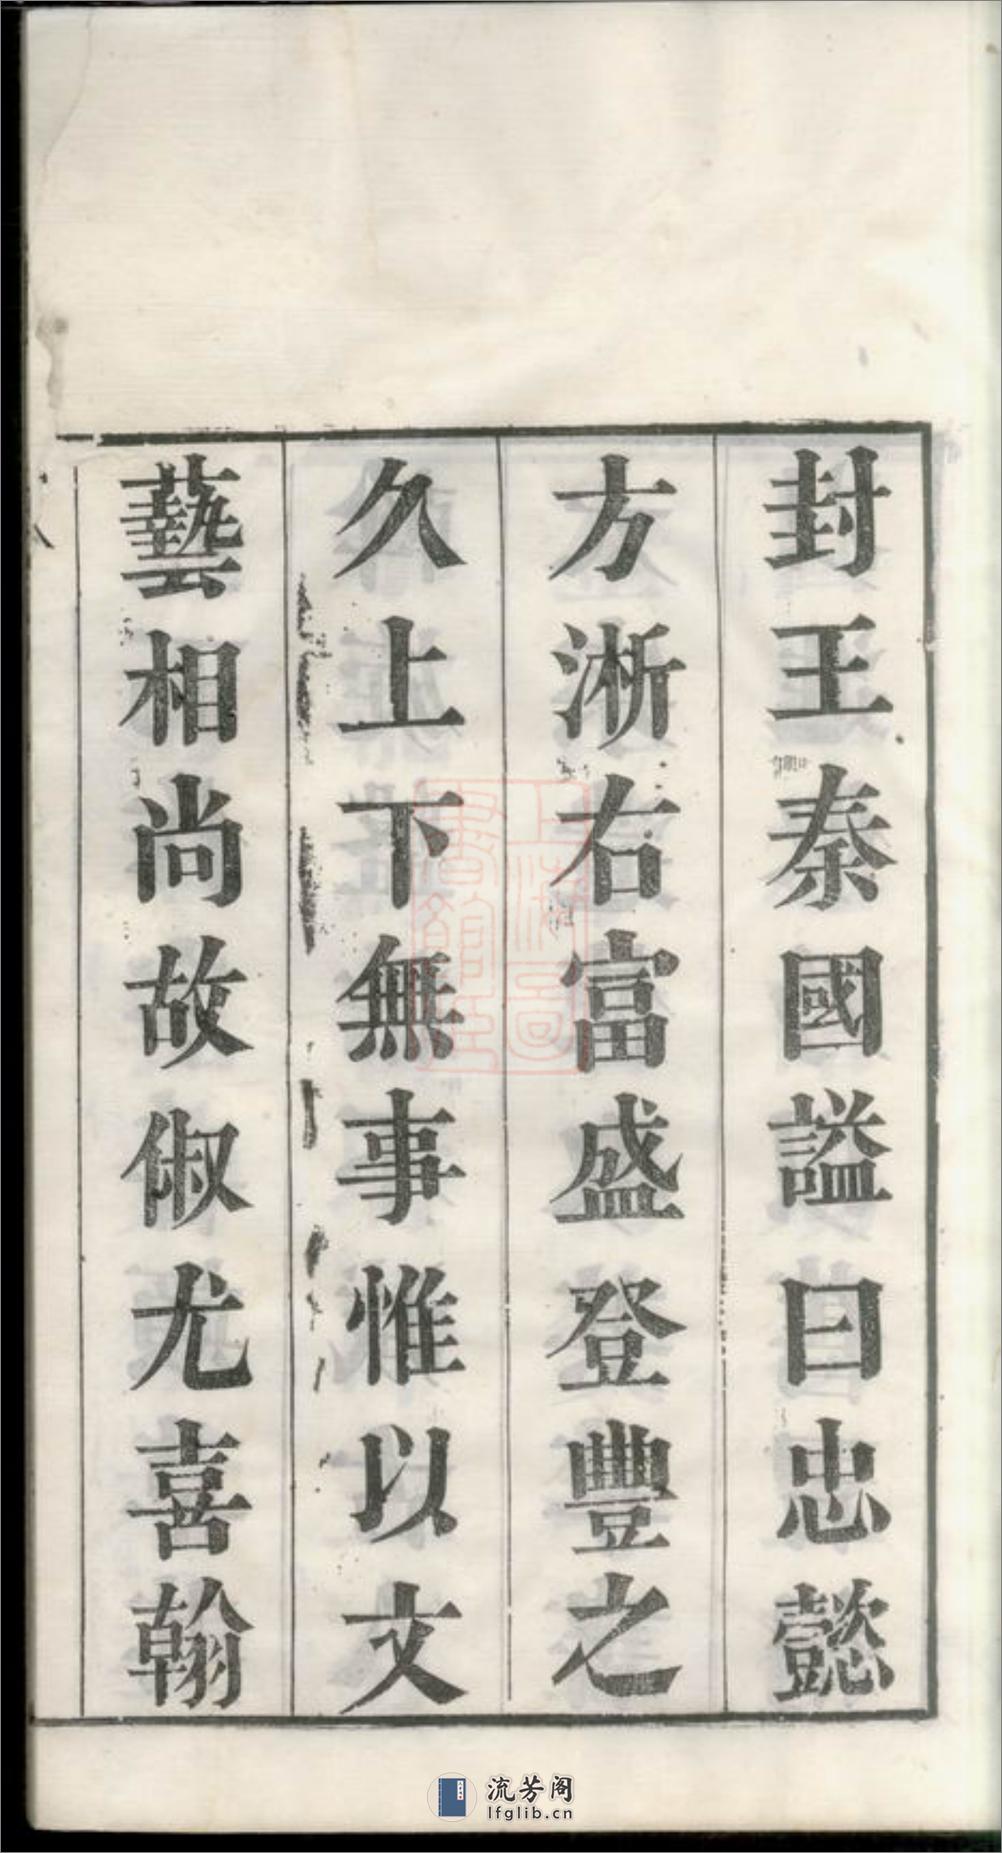 封王秦國謚曰忠懿
方淅右富盛登豐之
久上下無事惟以文
藝相尚故俶尤喜翰
上海圖書館藏
流芳阁
lfglib.cn